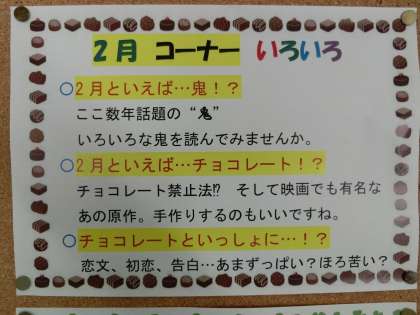 2月 コーナー いろいろ
○2月といえば…鬼！？
ここ数年話題の“鬼”
いろいろな鬼を読んでみませんか。
○2月といえば…チョコレート！？
チョコレート禁止法⁉ そして映画でも有名な
あの原作。手作りするのもいいですね。
○チョコレートといっしょに…！？
恋文、初恋、告白…あまずっぱい？ほろ苦い？